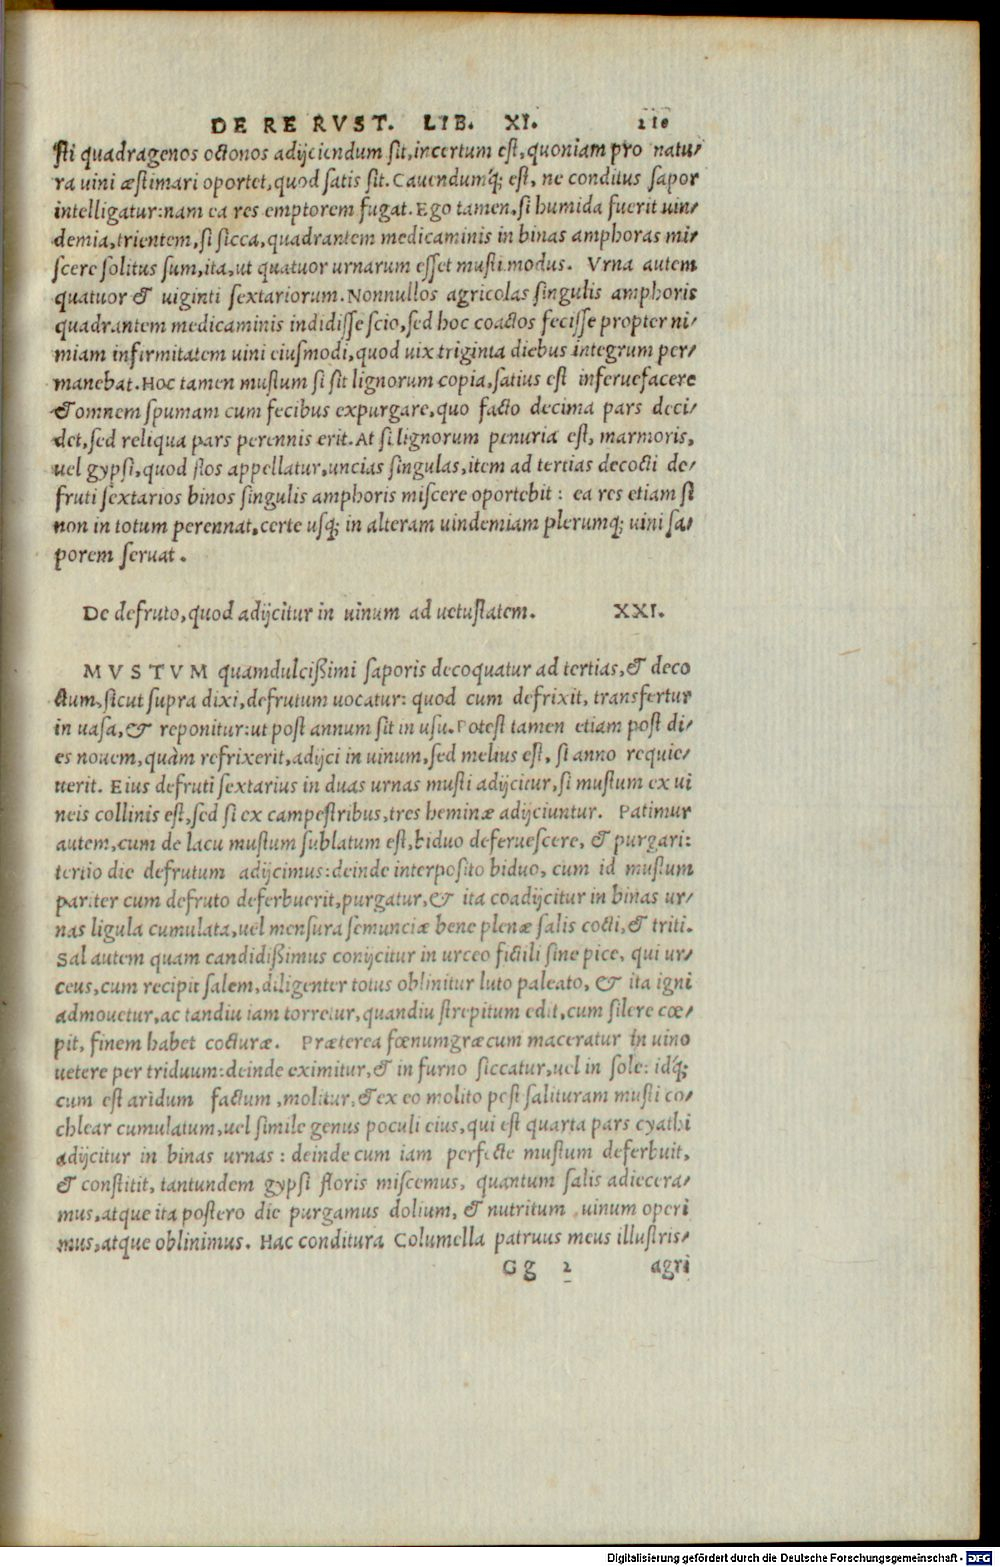 DE RE RVST. LIB. XI. 210
sti quadragenos octonos adijciendum sit, incertum est, quoniam pro natu/
ra uini æstimari oportet, quod satis sit. Cauendumq́; est, ne conditus sapor
intelligatur: nam ea res emptorem fugat. Ego tamen, si humida fuerit uin/
demia, trientem, si sicca, quadrantem medicaminis in binas amphoras mi/
scere solitus sum, ita, ut quatuor urnarum esset musti modus. Vrna autem
quatuor & uiginti sextariorum. Nonnullos agricolas singulis amphoris
quadrantem medicaminis indidisse scio, sed hoc coactos fecisse propter ni/
miam infirmitatem uini eiusmodi, quod uix triginta diebus integrum per/
manebat. Hoc tamen mustum si sit lignorum copia, satius est inferuefacere
& omnem spumam cum fecibus expurgare, quo facto decima pars deci/
det, sed reliqua pars perennis erit. At si lignorum penuria est, marmoris,
uel gypsi, quod flos appellatur, uncias singulas, item ad tertias decocti de/
fruti sextarios binos singulis amphoris miscere oportebit: ea res etiam si
non in totum perennat, certe usq; in alteram uindemiam plerumq; uini sa/
porem seruat.
De defruto, quod adijcitur in uinum ad uetustatem. XXI.
MVSTVM quamdulcißimi saporis decoquatur ad tertias, & deco
ctum, sicut supra dixi, defrutum uocatur: quod cum defrixit, transfertur
in uasa, & reponitur: ut post annum sit in usu. Potest tamen etiam post di/
es nouem, quàm refrixerit, adijci in uinum, sed melius est, si anno requie/
uerit. Eius defruti sextarius in duas urnas musti adijcitur, si mustum ex ui
neis collinis est, sed si ex campestribus, tres heminæ adijciuntur. Patimur
autem, cum de lacu mustum sublatum est, biduo deferuescere, & purgari:
tertio die defrutum adijcimus: deinde interposito biduo, cum id mustum
pariter cum defruto deferbuerit, purgatur, & ita coadijcitur in binas ur/
nas ligula cumulata, uel mensura semunciæ bene plenæ salis cocti, & triti.
Sal autem quam candidißimus conijcitur in urceo fictili sine pice, qui ur/
ceus, cum recipit salem, diligenter totus oblinitur luto paleato, & ita igni
admouetur, ac tandiu iam torretur, quandiu strepitum edit, cum silere cœ/
pit, finem habet cocturæ. Præterea fœnumgræcum maceratur in uino
uetere per triduum: deinde eximitur, & in furno siccatur, uel in sole: idq́;
cum est aridum factum, molitur, & ex eo molito post salituram musti co/
chlear cumulatum, uel simile genus poculi eius, qui est quarta pars cyathi
adijcitur in binas urnas: deinde cum iam perfecte mustum deferbuit,
& constitit, tantundem gypsi floris miscemus, quantum salis adiecera/
mus, atque ita postero die purgamus dolium, & nutritum uinum operi
mus, atque oblinimus. Hac conditura Columella patruus meus illustris/
Gg 2 agri
Digitalisierung gefördert durch die Deutsche Forschungsgemeinschaft - DFG